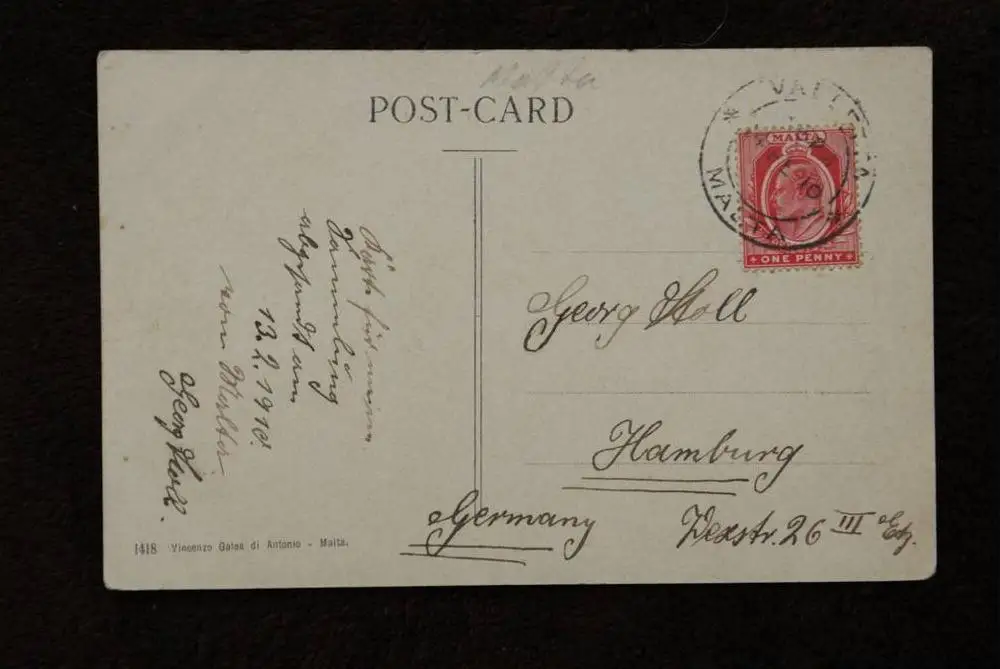 Malta
POST-CARD
VALLETTA
MALTA
10
MALTA
ONE PENNY
für meine
Sammlung
abgesandt am
13.2.1910.
von Malta
Georg Stoll.
Georg Stoll
Hamburg
Germany
Dexstr. 26 III Etg.
1418 Vincenzo Galea di Antonio - Malta.